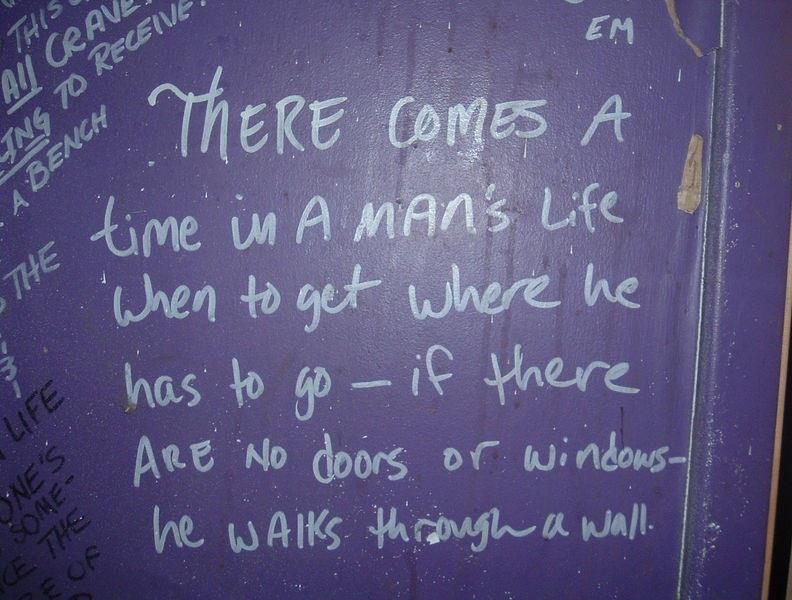 THIS
ALL CRAVE
TO RECEIVE
A BENCH
THE
EM
THERE COMES A
time in A MAN's Life
when to get where he
has to go — if there
ARE NO doors or windows-
he WALKS through a wall.
LIFE
ONE'S
SOME-
THE
OF